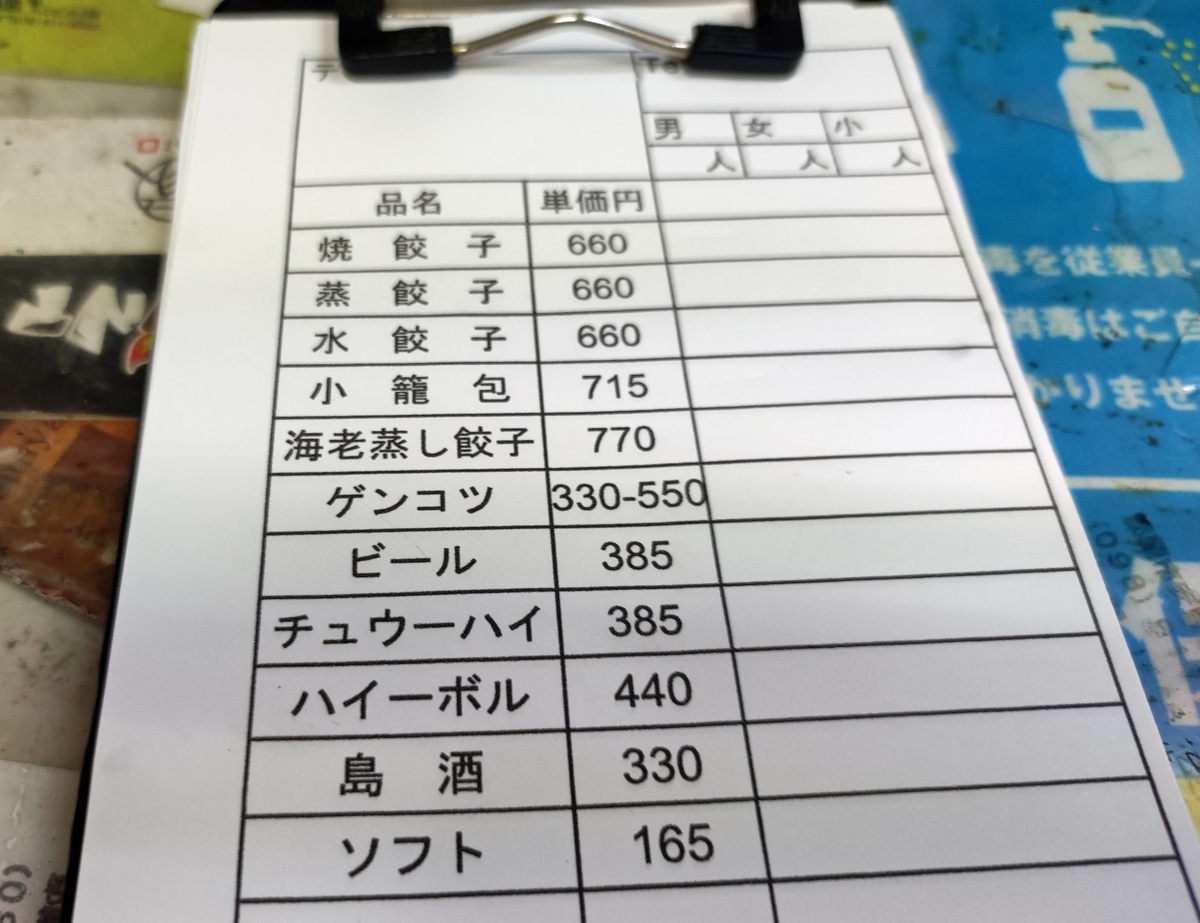 テ
男 女 小
人 人 人
品名 単価円
焼 餃 子 660
蒸 餃 子 660
水 餃 子 660
小 籠 包 715
海老蒸し餃子 770
ゲンコツ 330-550
ビール 385
チュウーハイ 385
ハイーボル 440
島 酒 330
ソフト 165
毒を従業員
消毒はご自
かりませ